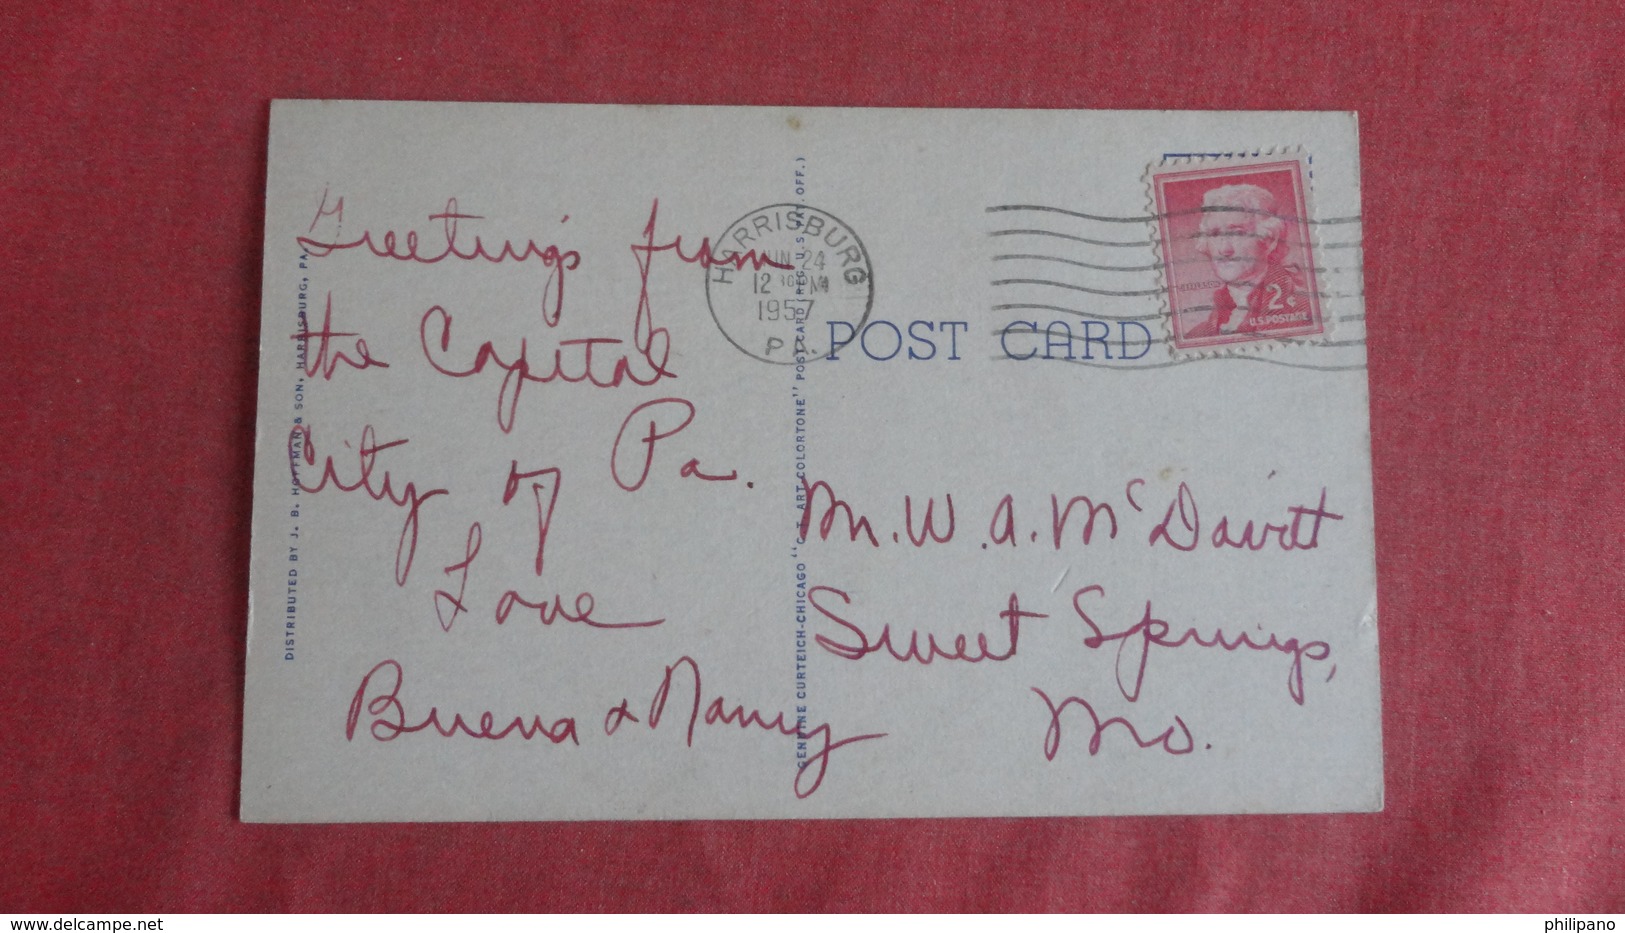 Greetings from
the Capital
City of Pa.
Love
Buena & Nancy
DISTRIBUTED BY J. B. HOFFMAN & SON, HARRISBURG, PA.
GENUINE CURTEICH-CHICAGO "C. T. ART-COLORTONE" POST CARD (REG. U.S. PAT. OFF.)
HARRISBURG
JUN 24
12 PM
1957
PA.
POST CARD
JEFFERSON
2¢
U.S. POSTAGE
M. W. A. McDavitt
Sweet Springs,
Mo.
philipano